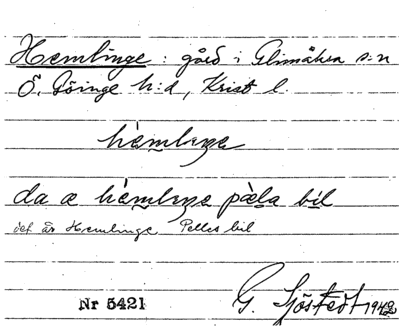 Hemlinge: gård i Glimåkra s:n
Ö. Göinge h:d, Krist l.
hèmlıŋe
da æ hèmlıŋe pæ̀la bíl
det är Hemlinge Pelles bil
Nr 5421 G. Sjöstedt 1942